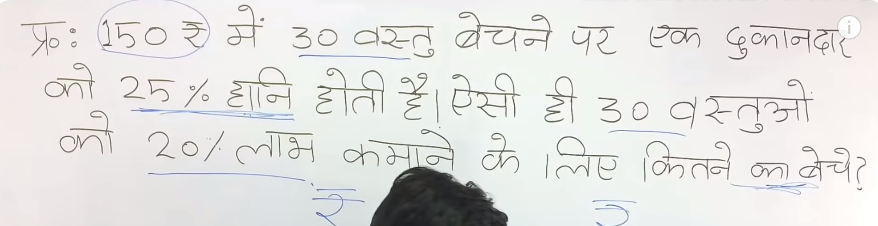 प्र: 150 ₹ में 30 वस्तु बेचने पर एक दुकानदार
को 25% हानि होती है। ऐसी ही 30 वस्तुओं
को 20% लाभ कमाने के लिए कितने का बेचे?
₹